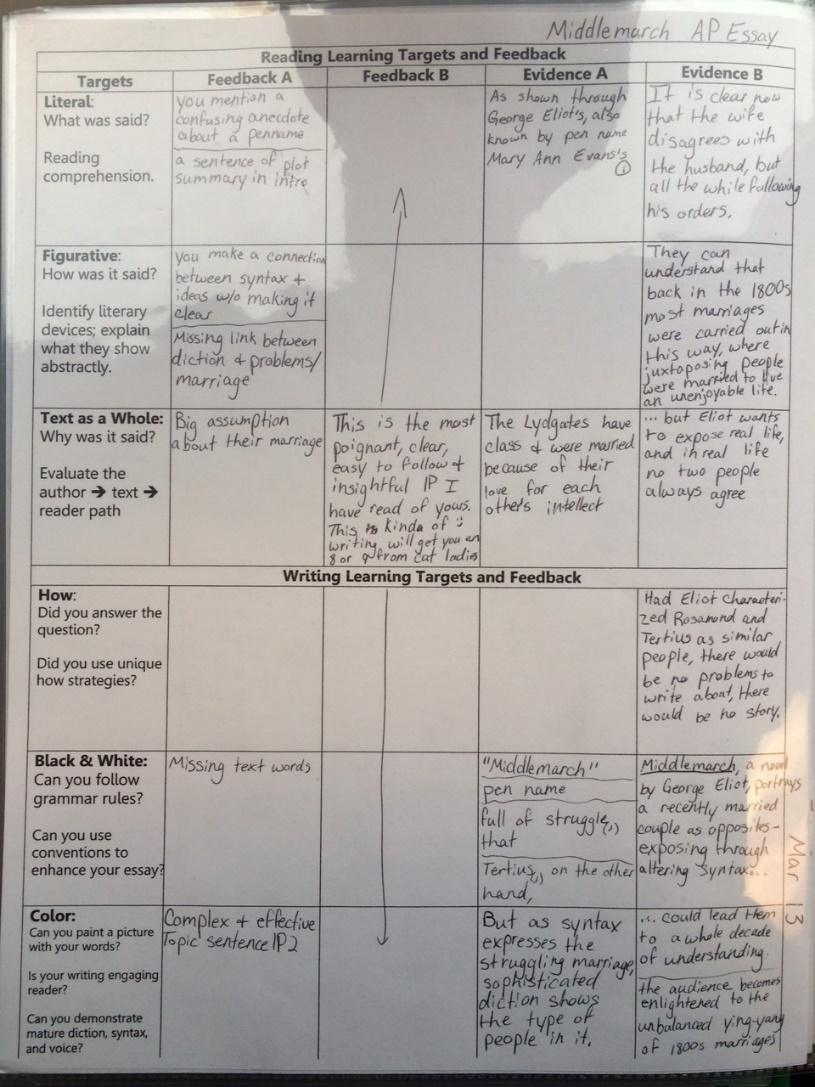 Middlemarch AP Essay
Reading Learning Targets and Feedback
Targets
Feedback A
Feedback B
Evidence A
Evidence B
Literal:
What was said?
Reading
comprehension.
you mention a
confusing anecdote
about a penname
a sentence of plot
summary in intro
As shown through
George Eliot's, also
known by pen name
Mary Ann Evans's
It is clear now
that the wife
disagrees with
the husband, but
all the while following
his orders.
Figurative:
How was it said?
Identify literary
devices; explain
what they show
abstractly.
you make a connection
between syntax +
ideas w/o making it
clear
Missing link between
diction + problems/
marriage
They can
understand that
back in the 1800s
most marriages
were carried out in
this way, where
juxtaposing people
were married to live
an unenjoyable life.
Text as a Whole:
Why was it said?
Evaluate the
author → text →
reader path
Big assumption
about their marriage
This is the most
poignant, clear,
easy to follow +
insightful IP I
have read of yours.
This kinda of :)
writing will get you an
8 or 9 from cat ladies
The Lydgates have
class + were married
because of their
love for each
other's intellect
... but Eliot wants
to expose real life,
and in real life
no two people
always agree
Writing Learning Targets and Feedback
How:
Did you answer the
question?
Did you use unique
how strategies?
Had Eliot characteri-
zed Rosamond and
Tertius as similar
people, there would
be no problems to
write about, there
would be no story.
Black & White:
Can you follow
grammar rules?
Can you use
conventions to
enhance your essay?
Missing text words
"Middlemarch"
pen name
full of struggle(,)
that
Tertius(,) on the other
hand,
Middlemarch, a novel
by George Eliot, portrays
a recently married
couple as opposites-
exposing through
altering syntax...
Mar 13
Color:
Can you paint a picture
with your words?
Is your writing engaging
reader?
Can you demonstrate
mature diction, syntax,
and voice?
Complex + effective
Topic sentence IP2
But as syntax
expresses the
struggling marriage,
sophisticated
diction shows
the type of
people in it.
... could lead them
to a whole decade
of understanding.
the audience becomes
enlightened to the
unbalanced ying-yang
of 1800s marriages